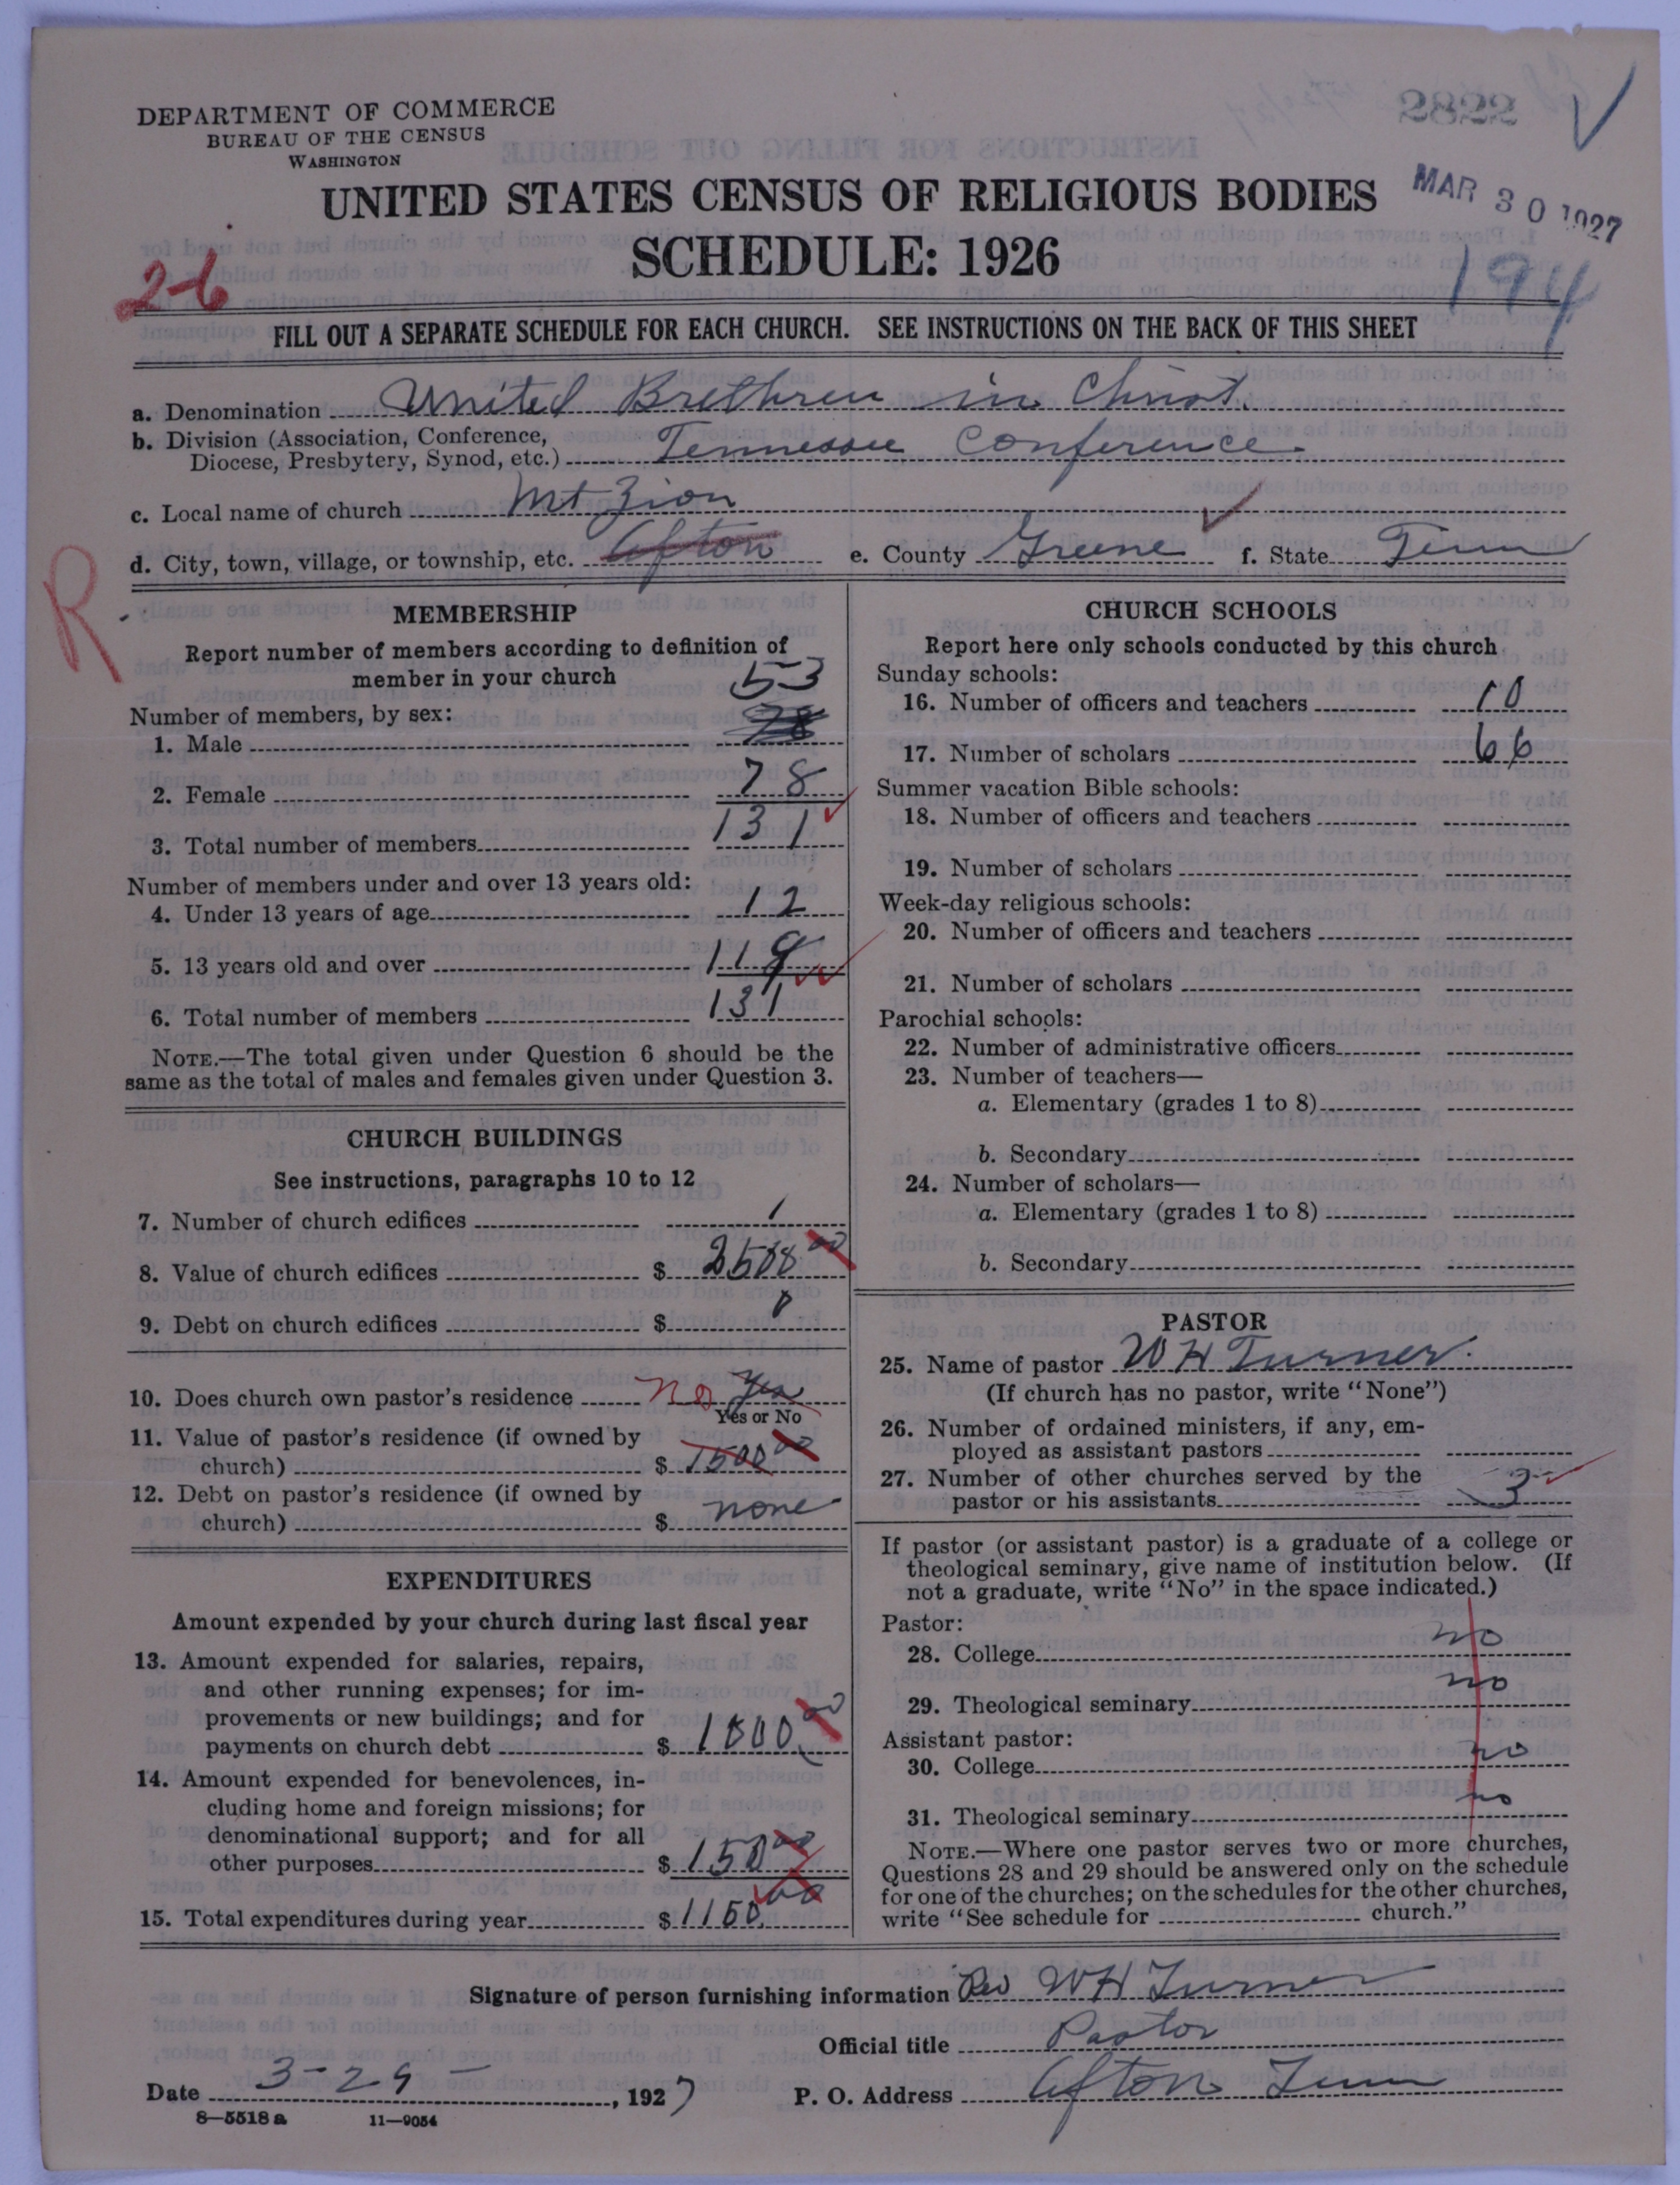 DEPARTMENT OF COMMERCE
BUREAU OF THE CENSUS
WASHINGTON
2822
UNITED STATES CENSUS OF RELIGIOUS BODIES
MAR 30 1927
SCHEDULE: 1926
26
194
FILL OUT A SEPARATE SCHEDULE FOR EACH CHURCH. SEE INSTRUCTIONS ON THE BACK OF THIS SHEET
a. Denomination United Brethren in Christ.
b. Division (Association, Conference,
Diocese, Presbytery, Synod, etc.) Tennessee Conference
c. Local name of church Mt Zion
d. City, town, village, or township, etc. Afton e. County Greene f. State Tenn
R
MEMBERSHIP
Report number of members according to definition of
member in your church
Number of members, by sex: 53
1. Male 78
2. Female 78
3. Total number of members 131
Number of members under and over 13 years old:
4. Under 13 years of age 12
5. 13 years old and over 119
6. Total number of members 131
NOTE.—The total given under Question 6 should be the
same as the total of males and females given under Question 3.
CHURCH BUILDINGS
See instructions, paragraphs 10 to 12
7. Number of church edifices 1
8. Value of church edifices $ 00
9. Debt on church edifices $ 0
10. Does church own pastor's residence no yes
Yes or No
11. Value of pastor's residence (if owned by
church) $ 1500 00
12. Debt on pastor's residence (if owned by
church) $ none
EXPENDITURES
Amount expended by your church during last fiscal year
13. Amount expended for salaries, repairs,
and other running expenses; for im-
provements or new buildings; and for
payments on church debt $ 1000 00
14. Amount expended for benevolences, in-
cluding home and foreign missions; for
denominational support; and for all
other purposes $ 150 00
15. Total expenditures during year $ 1150 00
CHURCH SCHOOLS
Report here only schools conducted by this church
Sunday schools:
16. Number of officers and teachers 10
17. Number of scholars 66
Summer vacation Bible schools:
18. Number of officers and teachers
19. Number of scholars
Week-day religious schools:
20. Number of officers and teachers
21. Number of scholars
Parochial schools:
22. Number of administrative officers
23. Number of teachers—
a. Elementary (grades 1 to 8)
b. Secondary
24. Number of scholars—
a. Elementary (grades 1 to 8)
b. Secondary
PASTOR
25. Name of pastor W H Turner
(If church has no pastor, write "None")
26. Number of ordained ministers, if any, em-
ployed as assistant pastors
27. Number of other churches served by the
pastor or his assistants 3
If pastor (or assistant pastor) is a graduate of a college or
theological seminary, give name of institution below. (If
not a graduate, write "No" in the space indicated.)
Pastor:
28. College no
29. Theological seminary no
Assistant pastor:
30. College no
31. Theological seminary no
NOTE.—Where one pastor serves two or more churches,
Questions 28 and 29 should be answered only on the schedule
for one of the churches; on the schedules for the other churches,
write "See schedule for church."
Signature of person furnishing information Rev W H Turner
Official title Pastor
Date 3-29-, 1927 P. O. Address Afton Tenn
8—5518a 11—9054